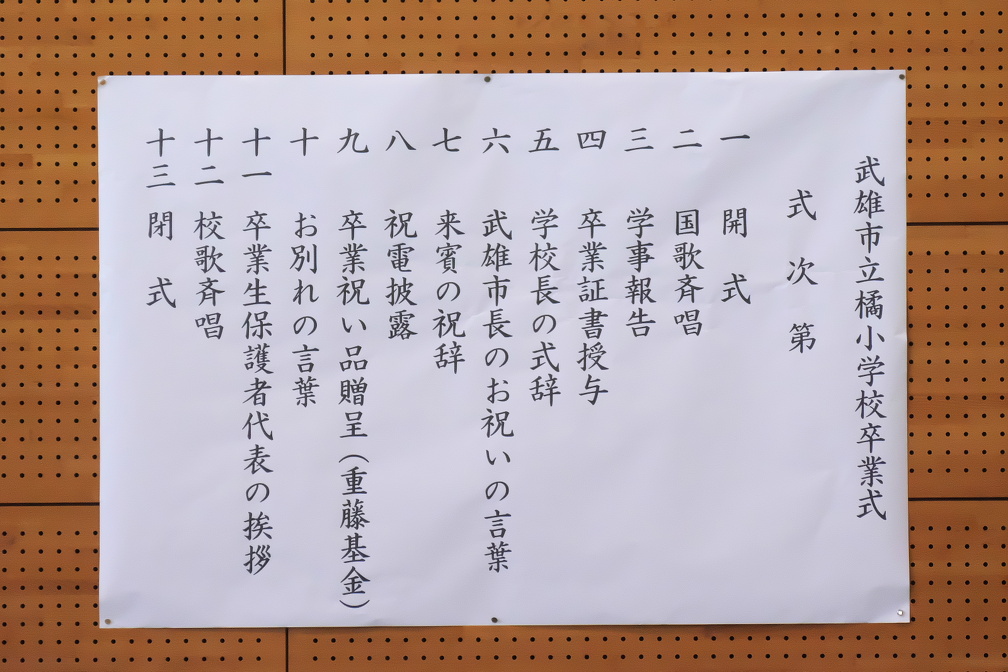 武雄市立橘小学校卒業式
式次第
一 開式
二 国歌斉唱
三 学事報告
四 卒業証書授与
五 学校長の式辞
六 武雄市長のお祝いの言葉
七 来賓の祝辞
八 祝電披露
九 卒業祝い品贈呈（重藤基金）
十 お別れの言葉
十一 卒業生保護者代表の挨拶
十二 校歌斉唱
十三 閉式